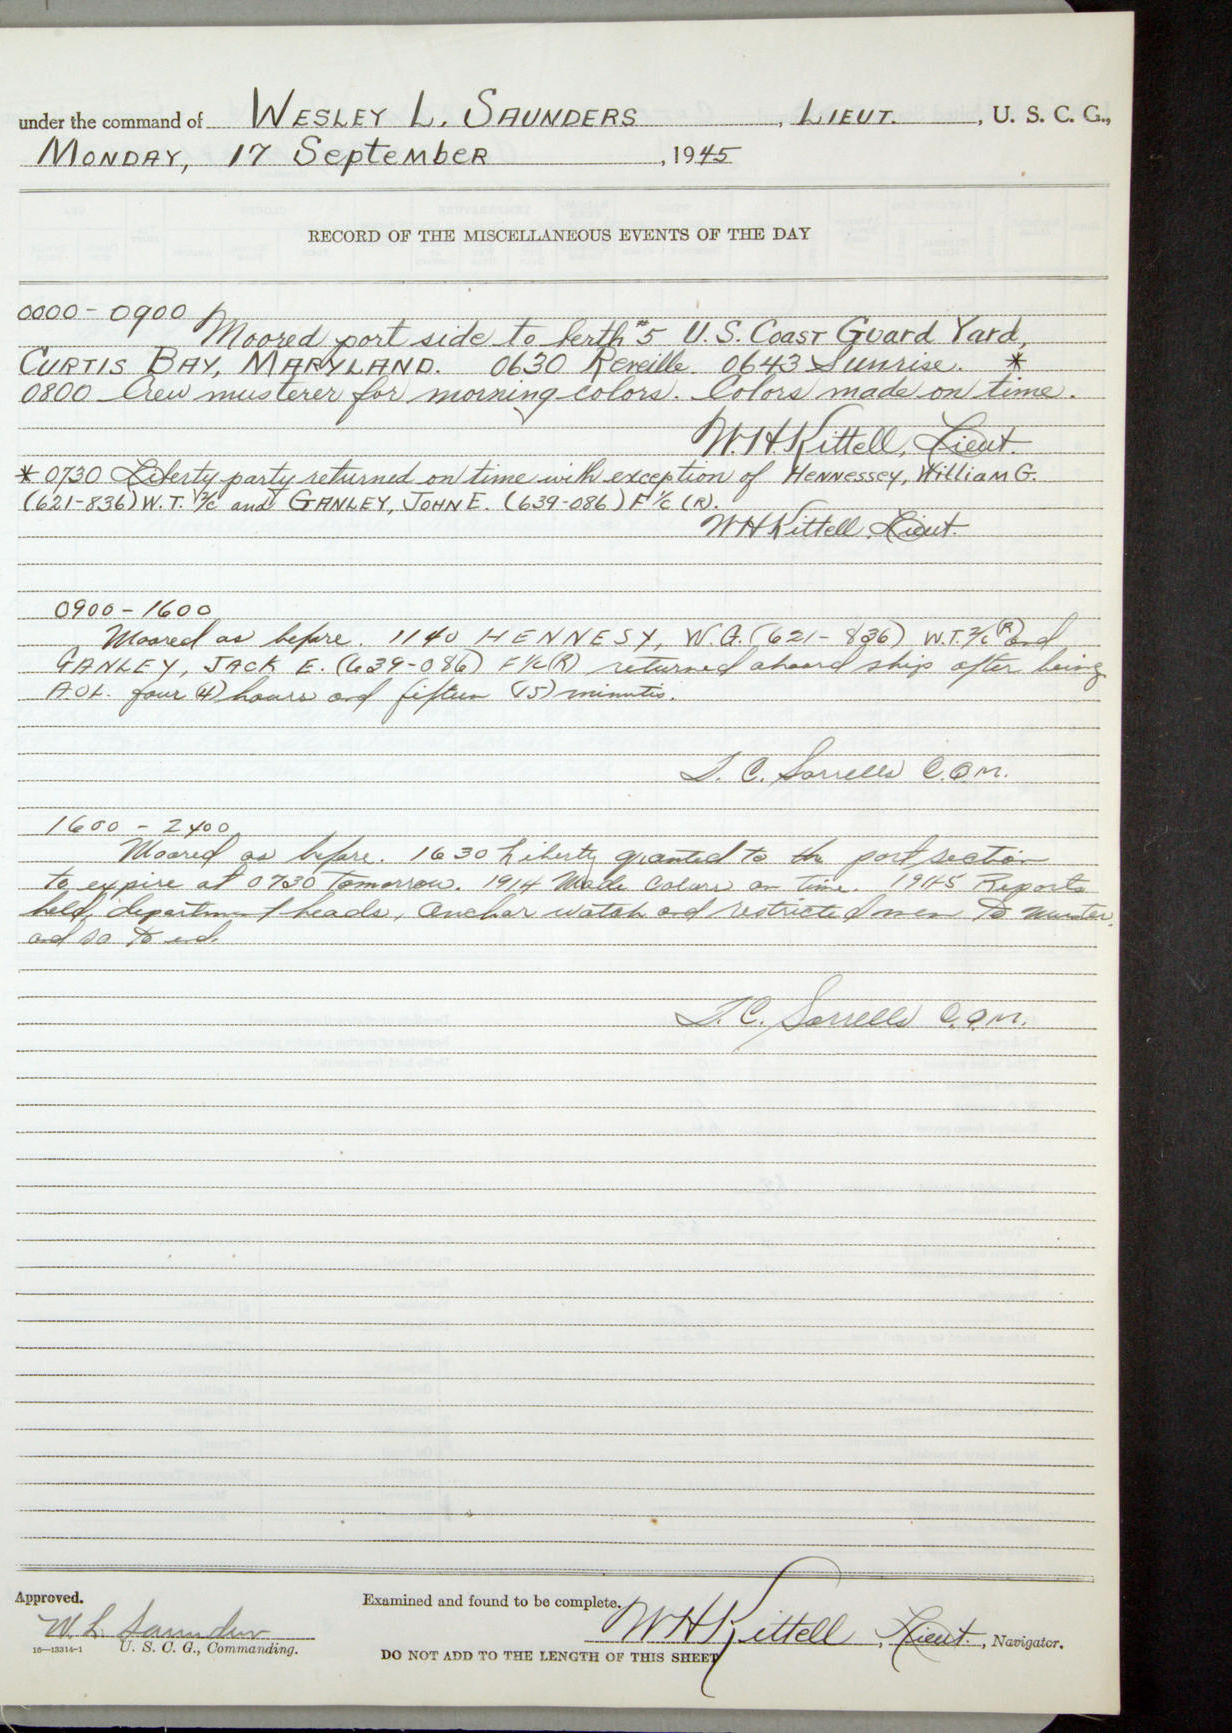 under the command of WESLEY L. SAUNDERS, LIEUT., U. S. C. G.,
MONDAY, 17 September, 1945
RECORD OF THE MISCELLANEOUS EVENTS OF THE DAY
0000 - 0900
Moored port side to berth #5 U.S. Coast Guard Yard,
CURTIS BAY, MARYLAND. 0630 Reveille 0643 Sunrise. *
0800 Crew musterer for morning colors. Colors made on time.
W.H. Kittell, Lieut.
* 0730 Liberty party returned on time with exception of HENNESSEY, William G.
(621-836) W.T. 3/c and GANLEY, JOHN E. (639-086) F 1/c (R).
W H Kittell, Lieut.
0900 - 1600
Moored as before. 1140 HENNESY, W.G. (621-836) W.T. 3/c (R) and
GANLEY, JACK E. (639-086) F 1/c (R) returned aboard ship after being
A.O.L. four (4) hours and fifteen (15) minutes.
T. C. Sorrells C.Q.M.
1600 - 2400
Moored as before. 1630 Liberty granted to the port section
to expire at 0730 tomorrow. 1914 Made Colors on time. 1945 Reports
held, department heads, anchor watch and restricted men to muster,
and so to end.
T. C. Sorrells C.Q.M.
Approved.
Examined and found to be complete.
W. L. Saunders
W H Kittell, Lieut., Navigator.
16—13314-1 U. S. C. G., Commanding.
DO NOT ADD TO THE LENGTH OF THIS SHEET